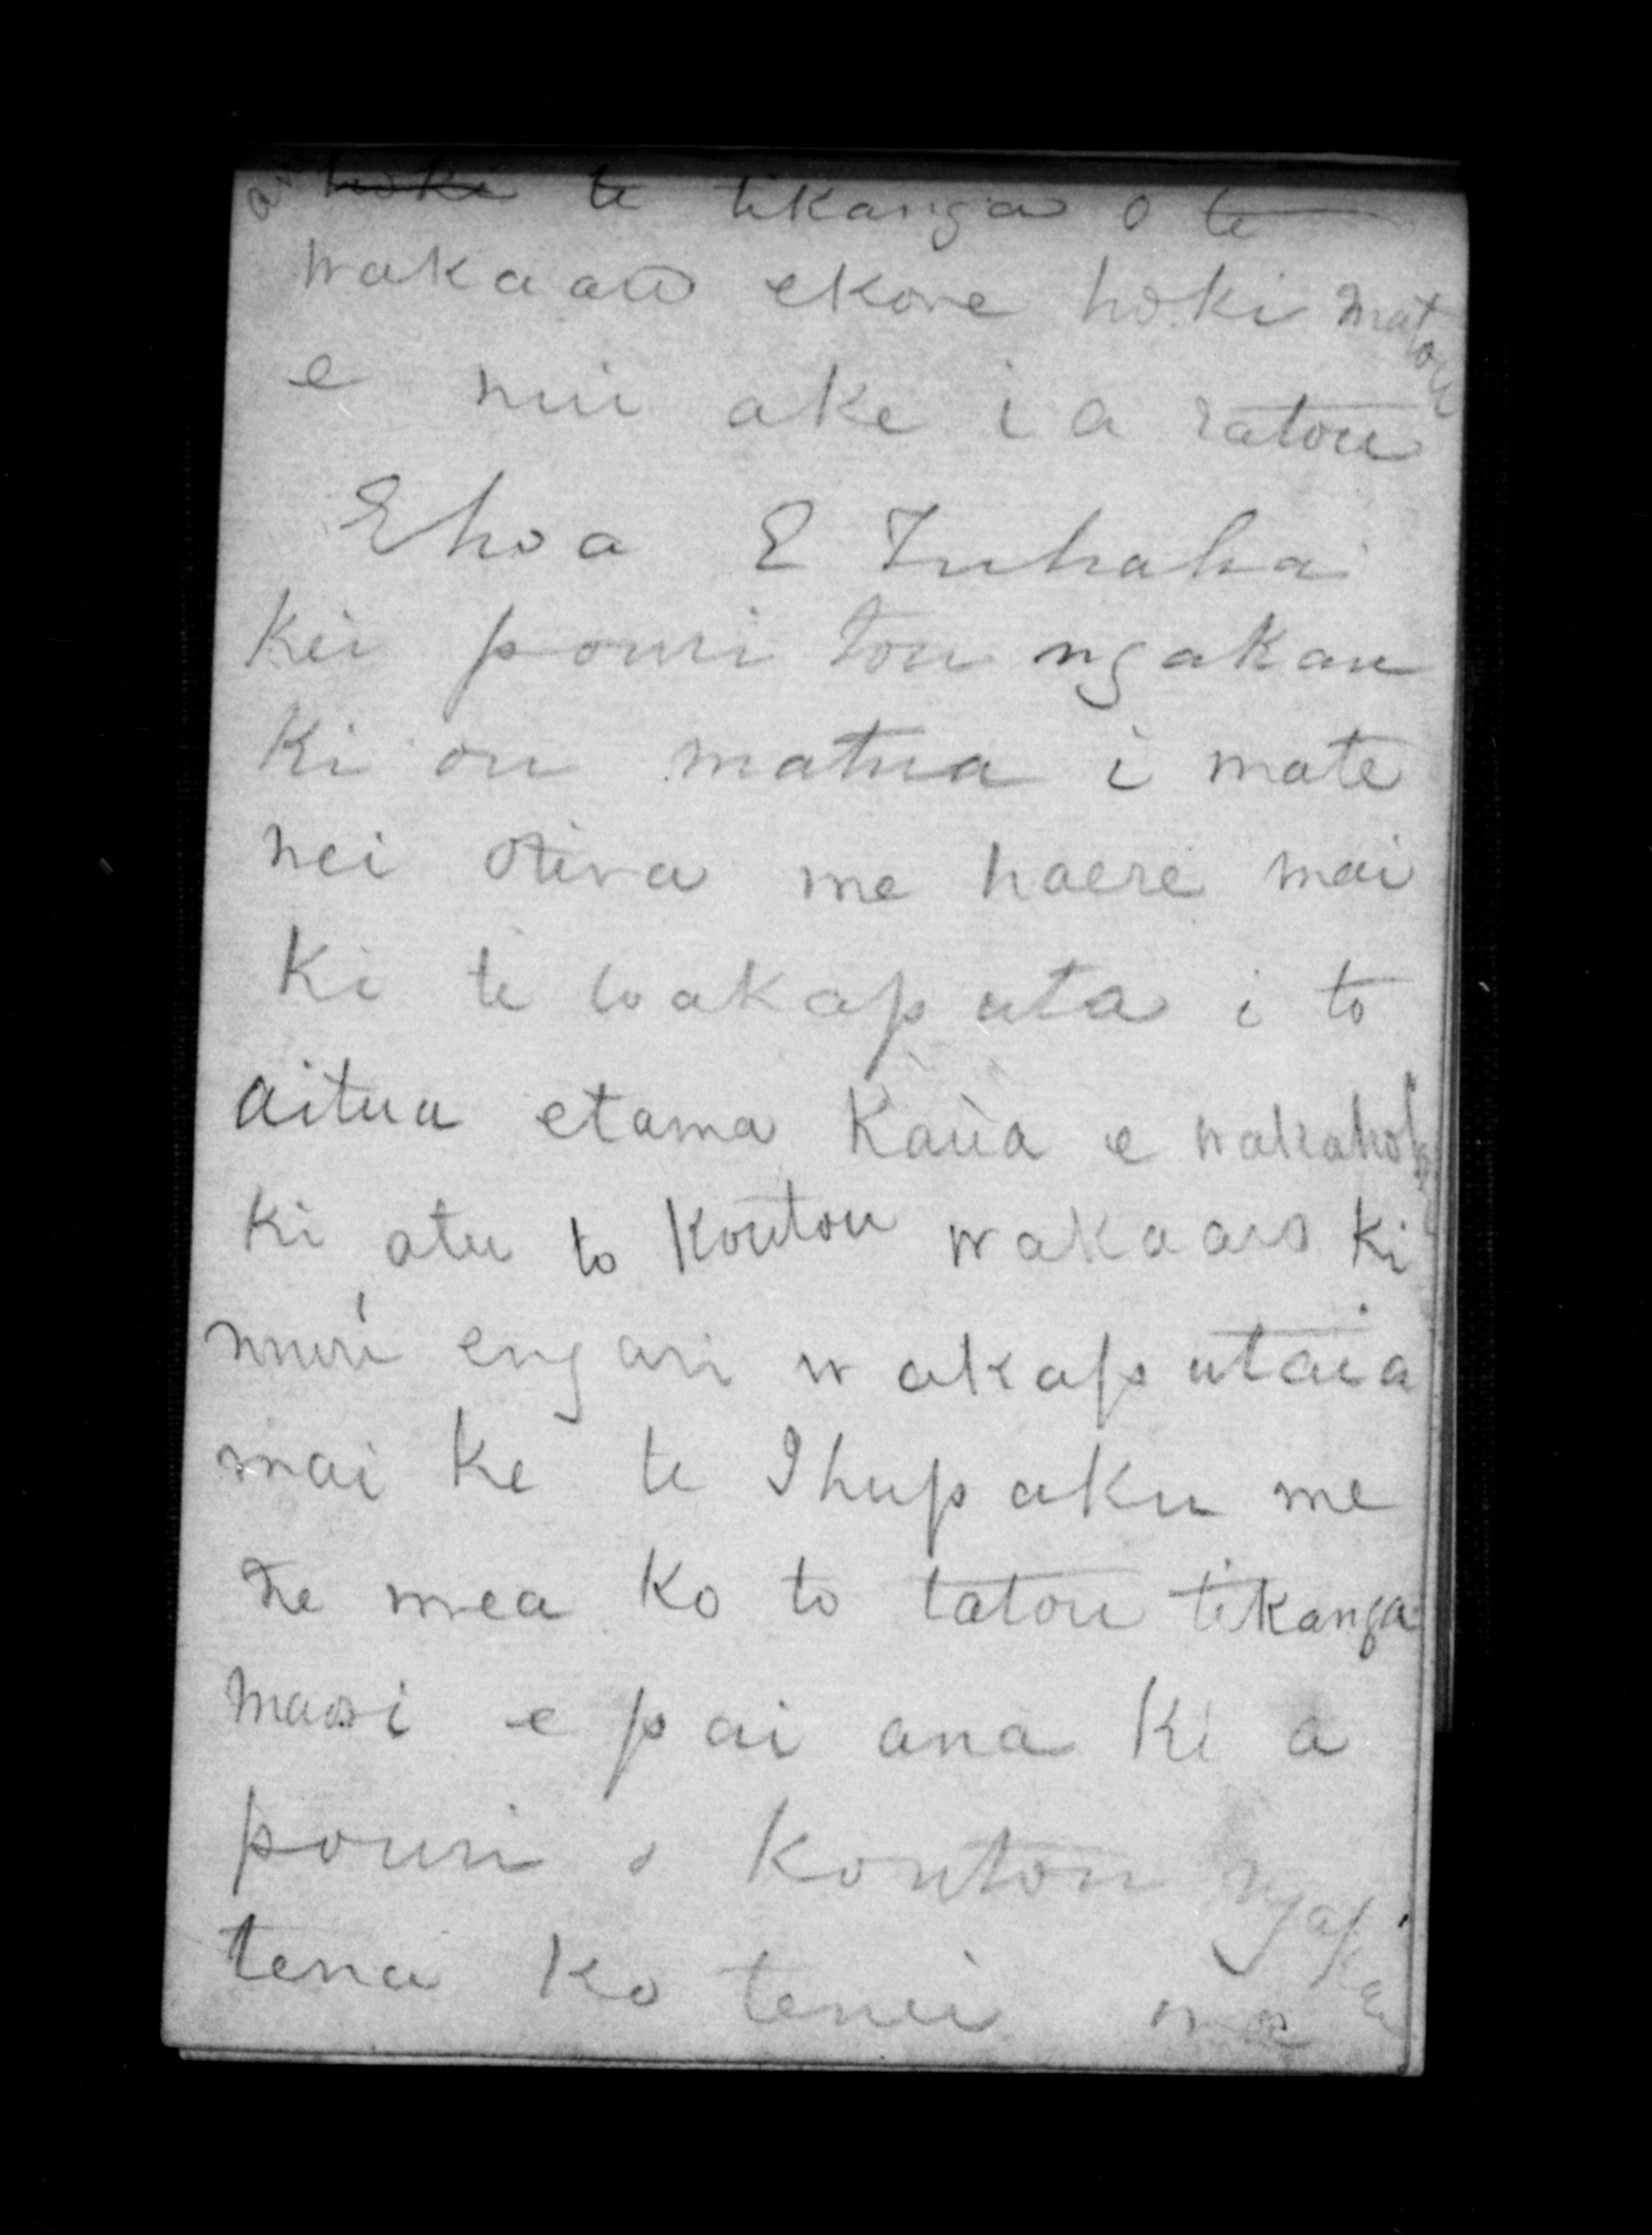 te tikanga o te
wakaaro ekore hoki matou
e nui ake i a ratou
Ehoa E Tuhaha
Kei pouri tou ngakau
Ki ou matua i mate
nei otira me haere mai
Ki te wakaputa i to
aitua etama Kaua e wakahoki
ki atu to Koutou wakaaro ki
muri engari wakaputaia
mai ke te Ihupuku me
te mea Ko to tatou tikanga
maori e pai ana Ki a
pouri o Koutou ngakau
tena Ko tenei